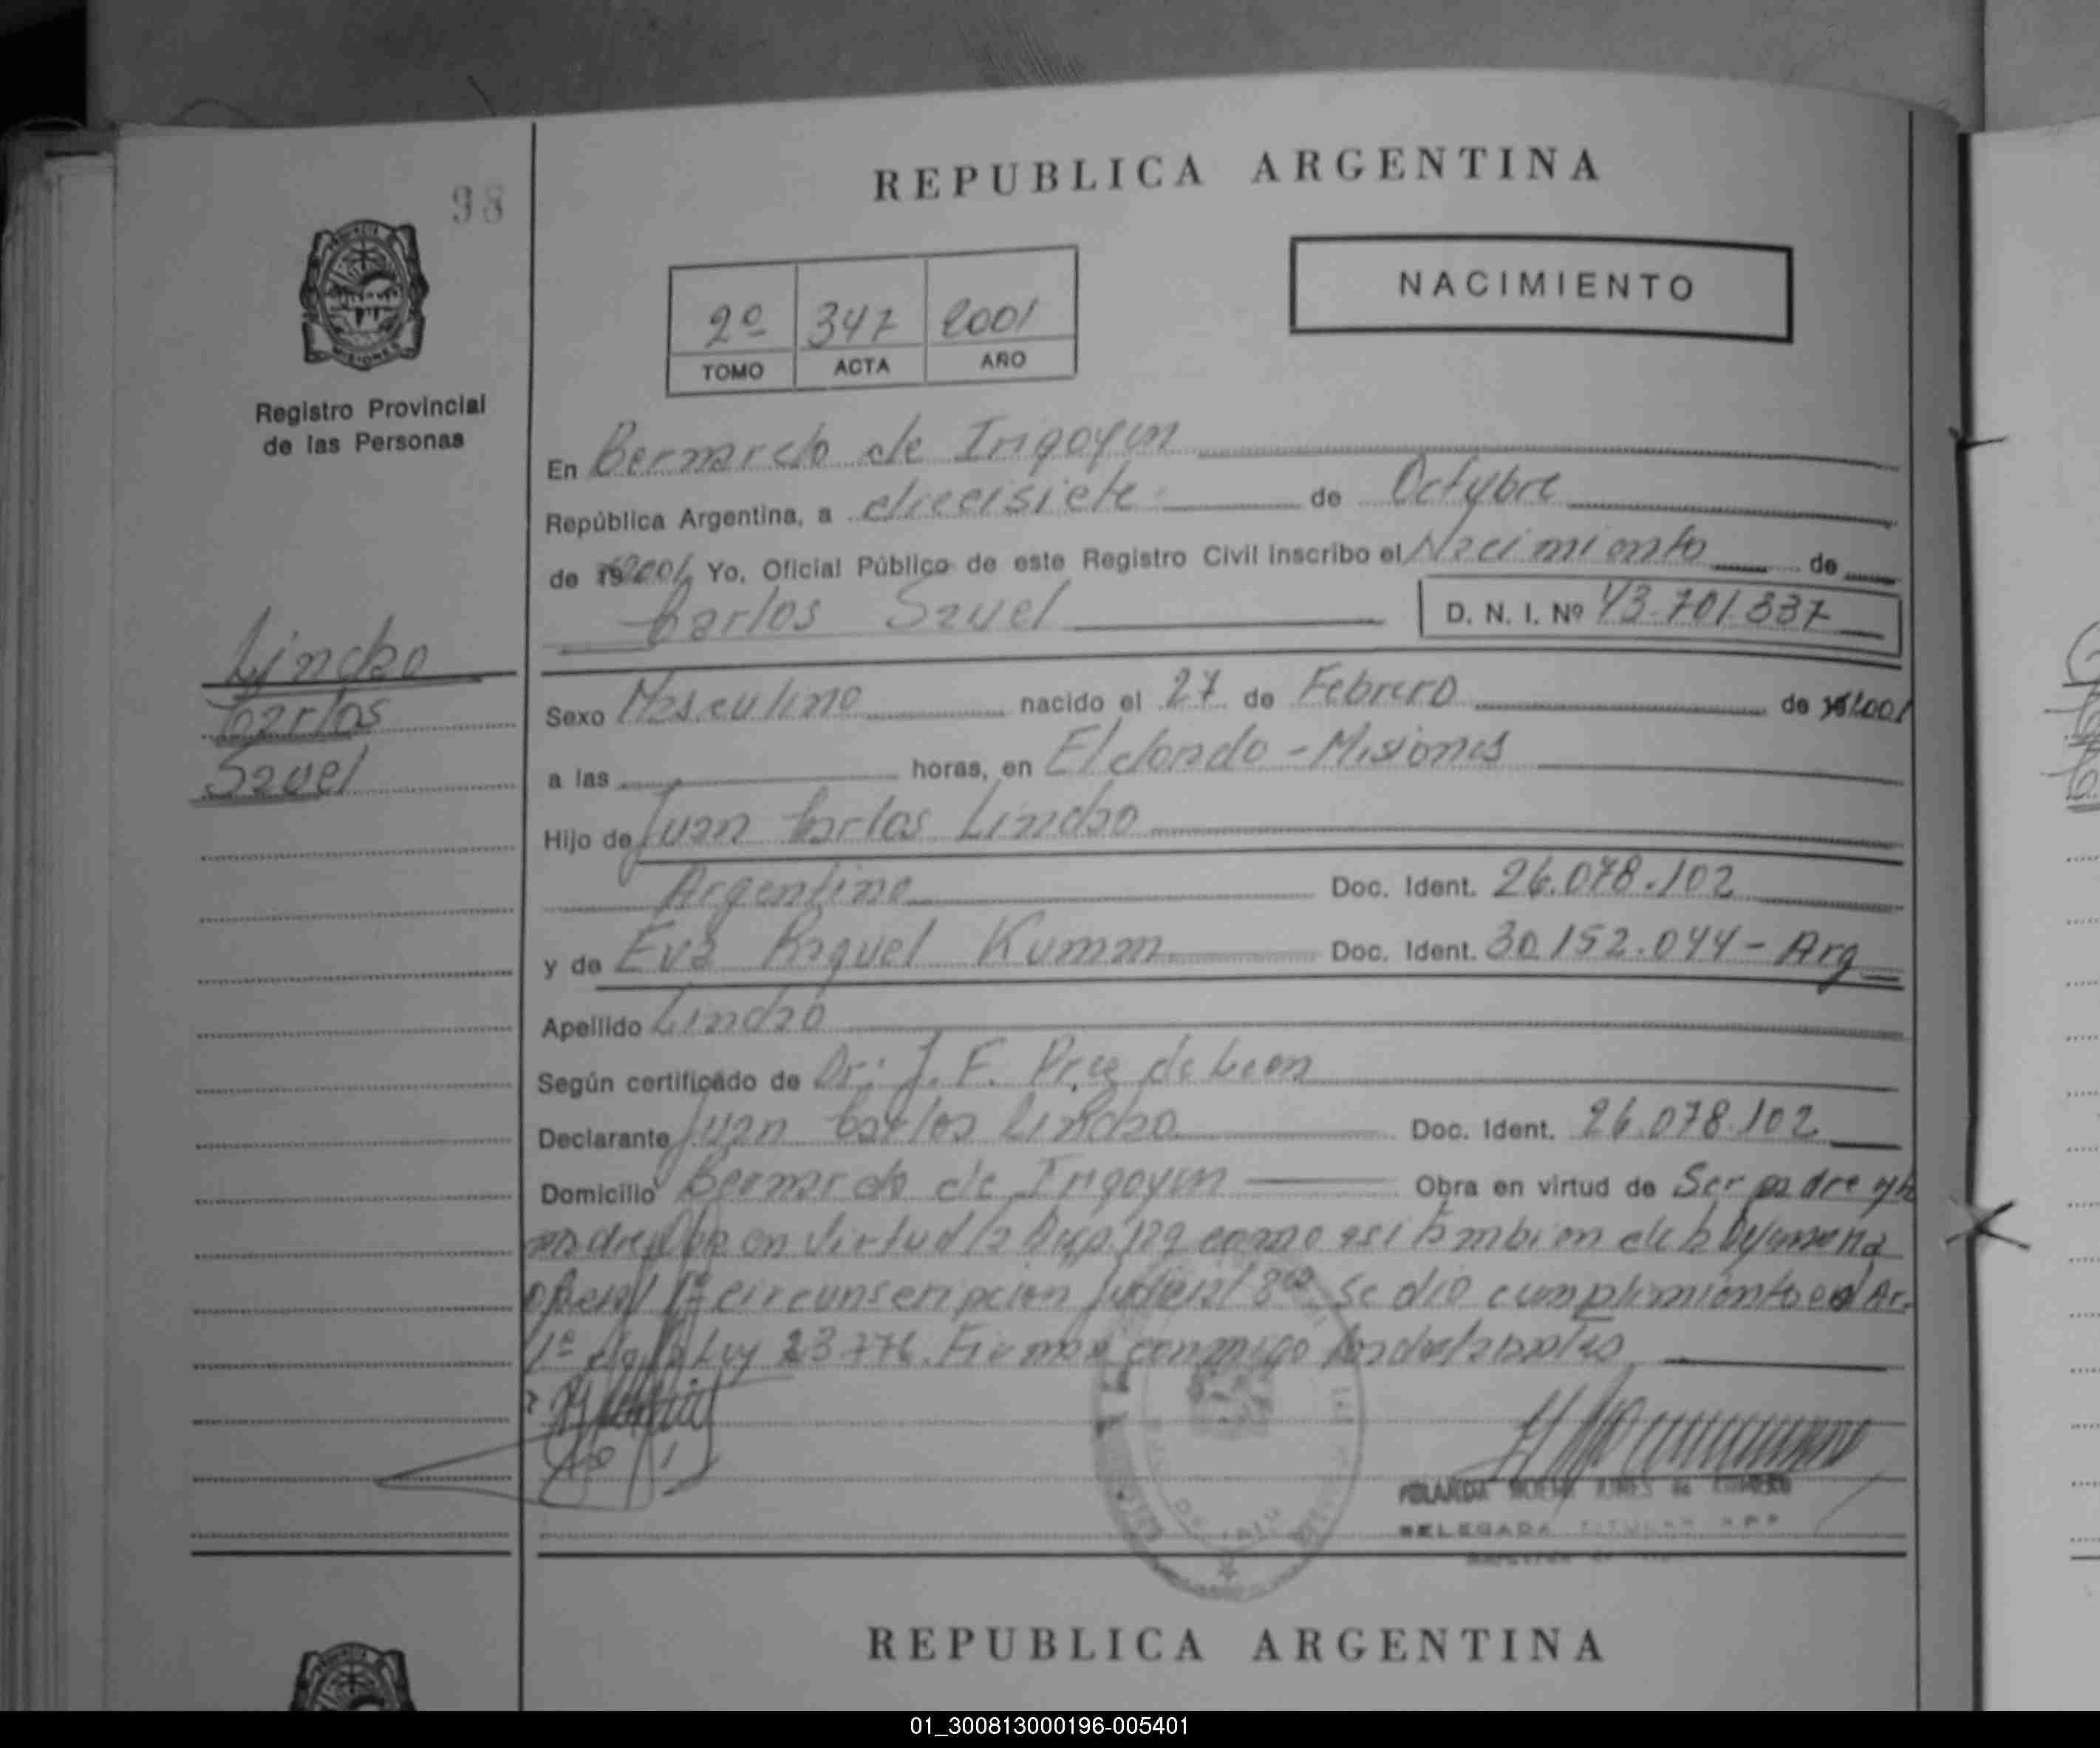 98
REPUBLICA ARGENTINA
NACIMIENTO
2º 347 2001
TOMO ACTA AÑO
Registro Provincial
de las Personas
En Bernardo de Irigoyen
República Argentina, a diecisiete de Octubre
de 192001 Yo, Oficial Público de este Registro Civil inscribo el Nacimiento de
Carlos Saúel D. N. I. Nº 43.701.337
Carlos
Saúel
Sexo Masculino nacido el 27 de Febrero de 192001
a las horas, en Eldorado - Misiones
Hijo de Juan Carlos
Argentino Doc. Ident. 26.078.102
y de Eva Raquel Kuman Doc. Ident. 30.152.044 - Arg
Apellido
Según certificado de Dr: J. F. de Leon
Declarante Juan Carlos Doc. Ident. 26.078.102
Domicilio Bernardo de Irigoyen Obra en virtud de Ser padre y
madre en virtud la Disp. 122 como asi tambien de
1ª circunscripcion Judicial Se dio cumplimiento Ar.
1º Ley 23776. Firman conmigo
DELEGADA TITULAR RPP
MISIONES
REPUBLICA ARGENTINA
01_300813000196-005401